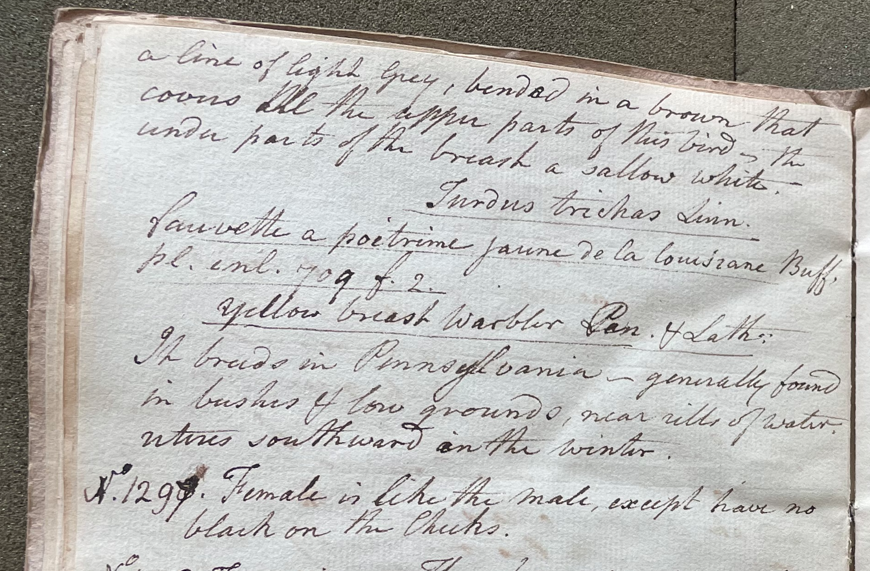 a line of light Grey, bended in a brown that
covers all the upper parts of this bird – the
under parts of the breast a sallow white.
Turdus trichas Linn.
Fauvette a poitrine jaune de la louisiane Buff.
pl. enl. 709 f. 2.
Yellow breast Warbler Pen. & Lath:
It breeds in Pennsylvania – generally found
in bushes & low grounds, near rills of water.
retires southward in the winter.
No. 129 . Female is like the male, except have no
black on the Cheeks.